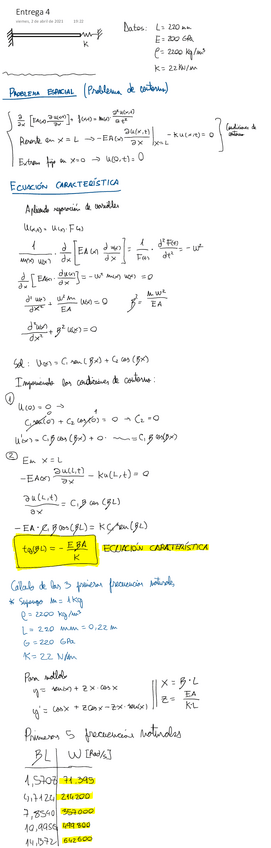 Entrega 4
viernes, 2 de abril de 2021 19:32
Datos: L = 220 mm
E = 200 GPa
ρ = 2200 kg/m³
K = 22 N/m
K
PROBLEMA ESPACIAL (Problema de contorno)
Resorte en x = L → -EA(x) ∂u(x,t)/∂x |x=L - K u(L,t) = 0
Condiciones de contorno
Extremo fijo en x=0 → u(0,t) = 0
ECUACIÓN CARACTERÍSTICA
Aplicando separación de variables
U(x,t) = U(x)·F(t)
1/(m(x) u(x)) · d/dx [EA(x) du(x)/dx] = 1/F(t) · d²F(t)/dt² = -w²
d/dx [EA(x) · du(x)/dx] = -w² m(x) u(x) = 0
d²u(x)/dx² + w²m/EA u(x) = 0 β² = m w²/EA
d²u(x)/dx² + β² u(x) = 0
Sol: U(x) = C₁ sen(βx) + C₂ cos(βx)
Imponiendo las condiciones de contorno:
① U(0) = 0 →
C₁ sen(0) + C₂ cos(0) = 0 → C₂ = 0
U'(x) = C₁β cos(βx) + 0 = C₁β cos(βx)
② En x = L
-EA(x) ∂u(L,t)/∂x - Ku(L,t) = 0
∂u(L,t)/∂x = C₁β cos(βL)
-EA·C₁β cos(βL) = K C₁ sen(βL)
tg(βL) = - EβA/K ECUACIÓN CARACTERÍSTICA
Cálculo de las 5 primeras frecuencias naturales
* Supongo m = 1 kg
ρ = 2200 kg/m³
L = 220 mm = 0,22 m
G = 220 GPa
K = 22 N/m
Para matlab
y = sen(x) + z x · cos x
x = β·L
y' = cos x + z cos x - z x · sen(x)
z = EA/K·L
Primeras 5 frecuencias naturales
βL W [Rad/s]
1,5708 71.395
4,7124 214200
7,8540 357000
10,9956 499800
14,1372 642600